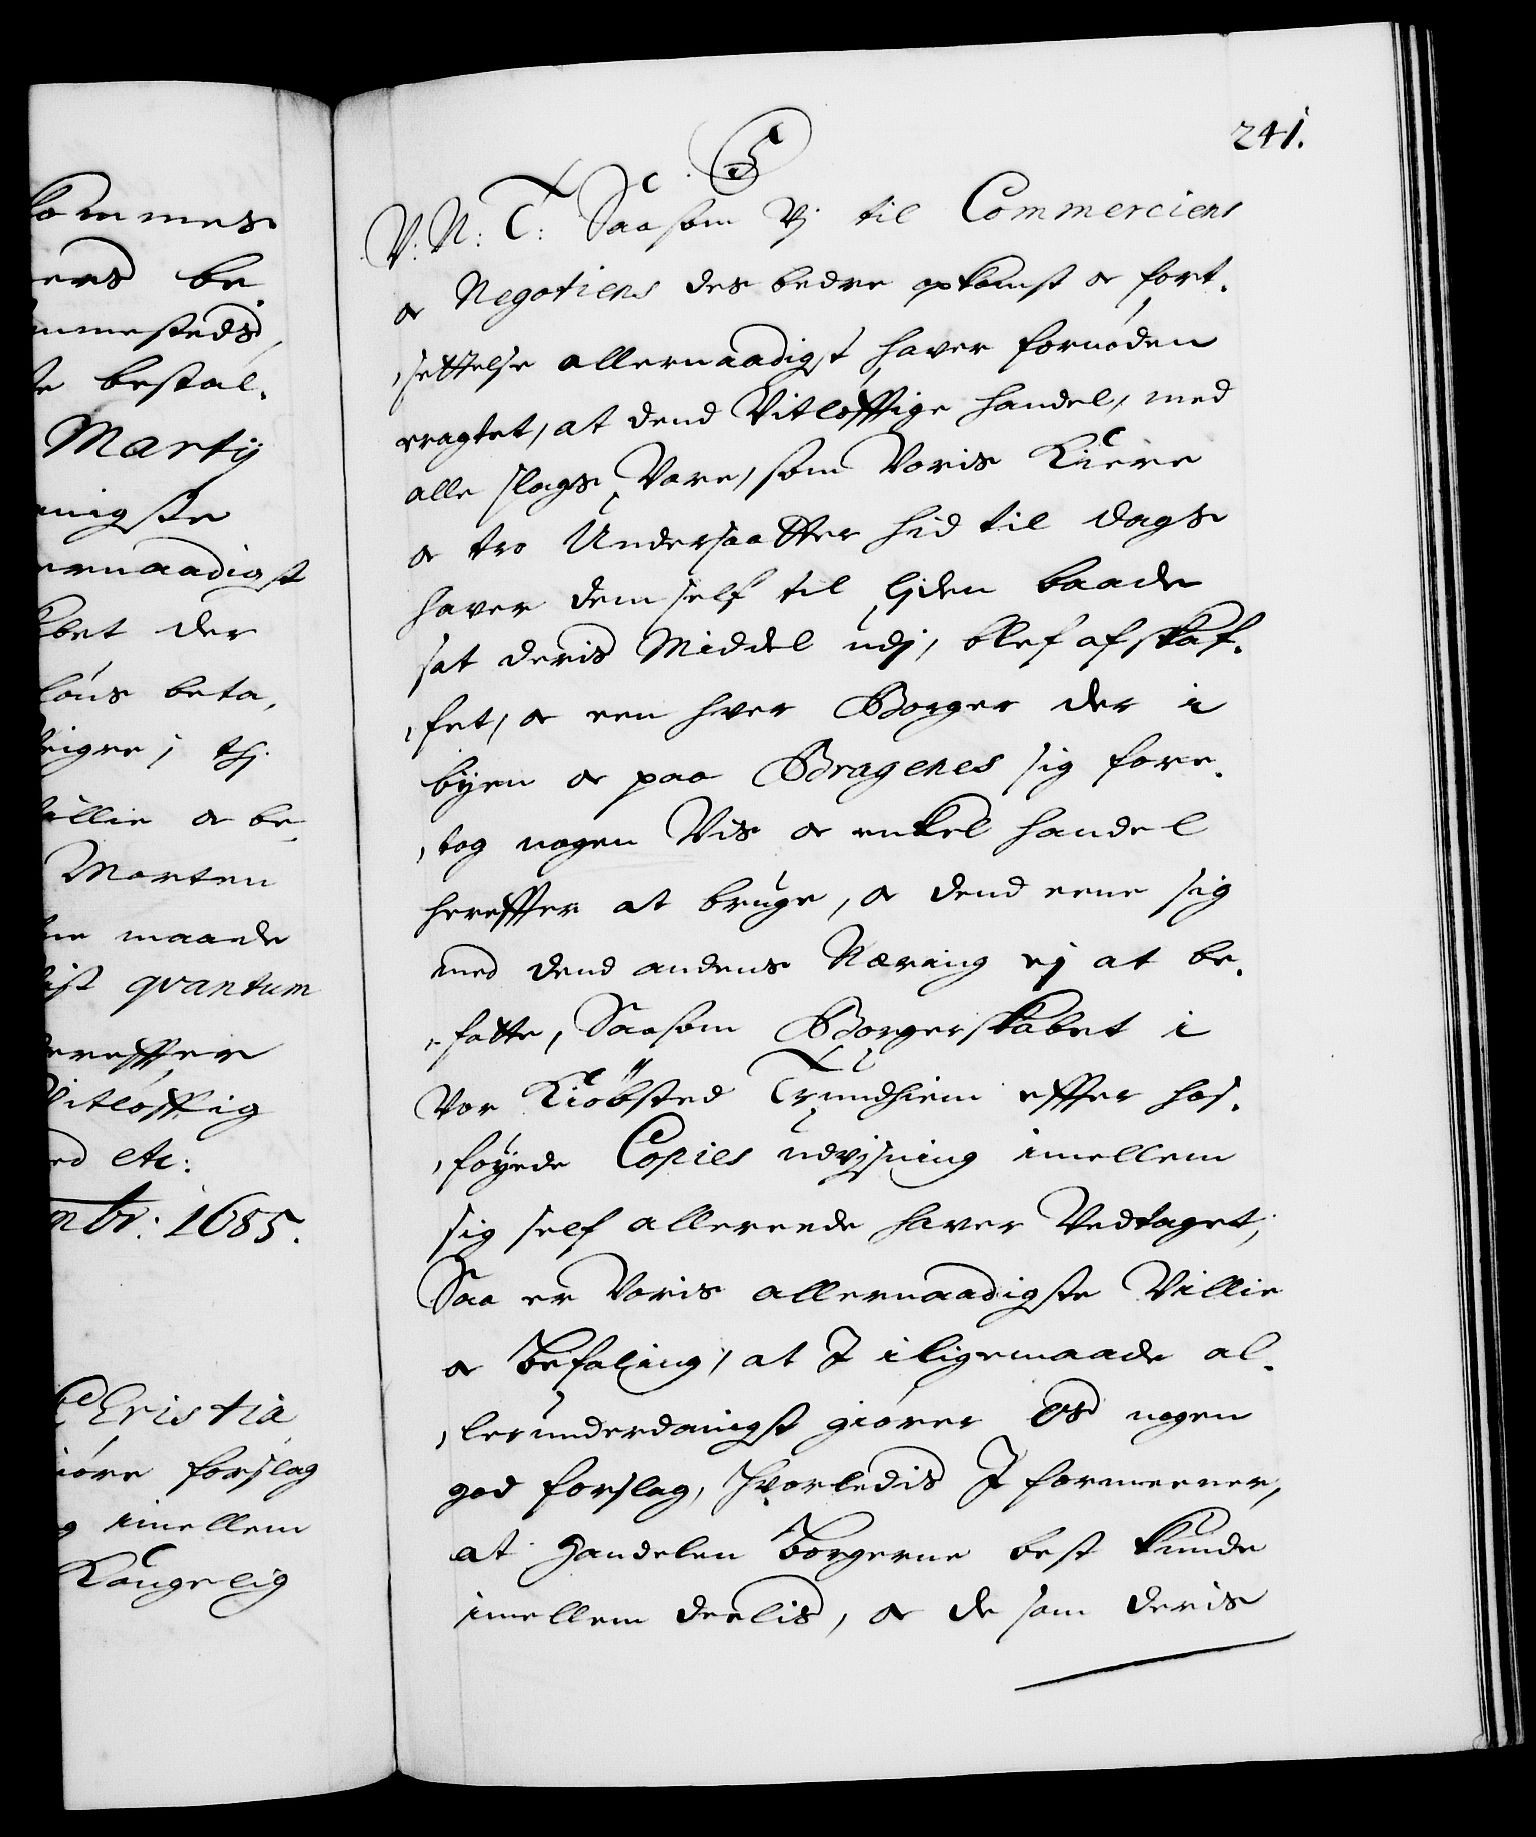 kommes
ers be
mmesteds,
te bestal-
Martij
nigste
ernaadigst
bet der
löns beta,
eigne, thj
illie oc be
Morten
ne maade
ist qvantum
ereffter
Vitlöfftig
ed etc:
mbr: 1685.
Christia
iöre forslag
imellem
Kongelig
241.
C. 5
V: N: T: Saasom Vj til Commerciens
oc Negotiens des bedre opkomst oc fort-
settelse allernaadigst haver fornöden
eragtet, at dend Vitlöfftige handel, med
alle slags Vare, som Voris Kiere
oc tro Undersaatter hid til dags
haver dem self til ljden baade
sat deris Middel udj, blef afskaf-
fet, oc een hver Borger der i
byen oc paa Bragenes sig fore-
tog nogen Vis oc enkel handel
hereffter at bruge, oc dend eene sig
med dend andens Næring ej at be-
fatte, Saasom Borgerskabet i
Vor Kiöbsted Trundhiem effter hos-
föyede Copies udvjsning imellem
sig self allereede haver Vedtaget;
Saa er Voris allernaadigste Villie
oc Befaling, at I iligemaade al-
lerunderdanigst giörer Os nogen
god forslag, hvorledis I formeener,
at Handelen Borgerne best kunde
imellem deelis, oc de som deris